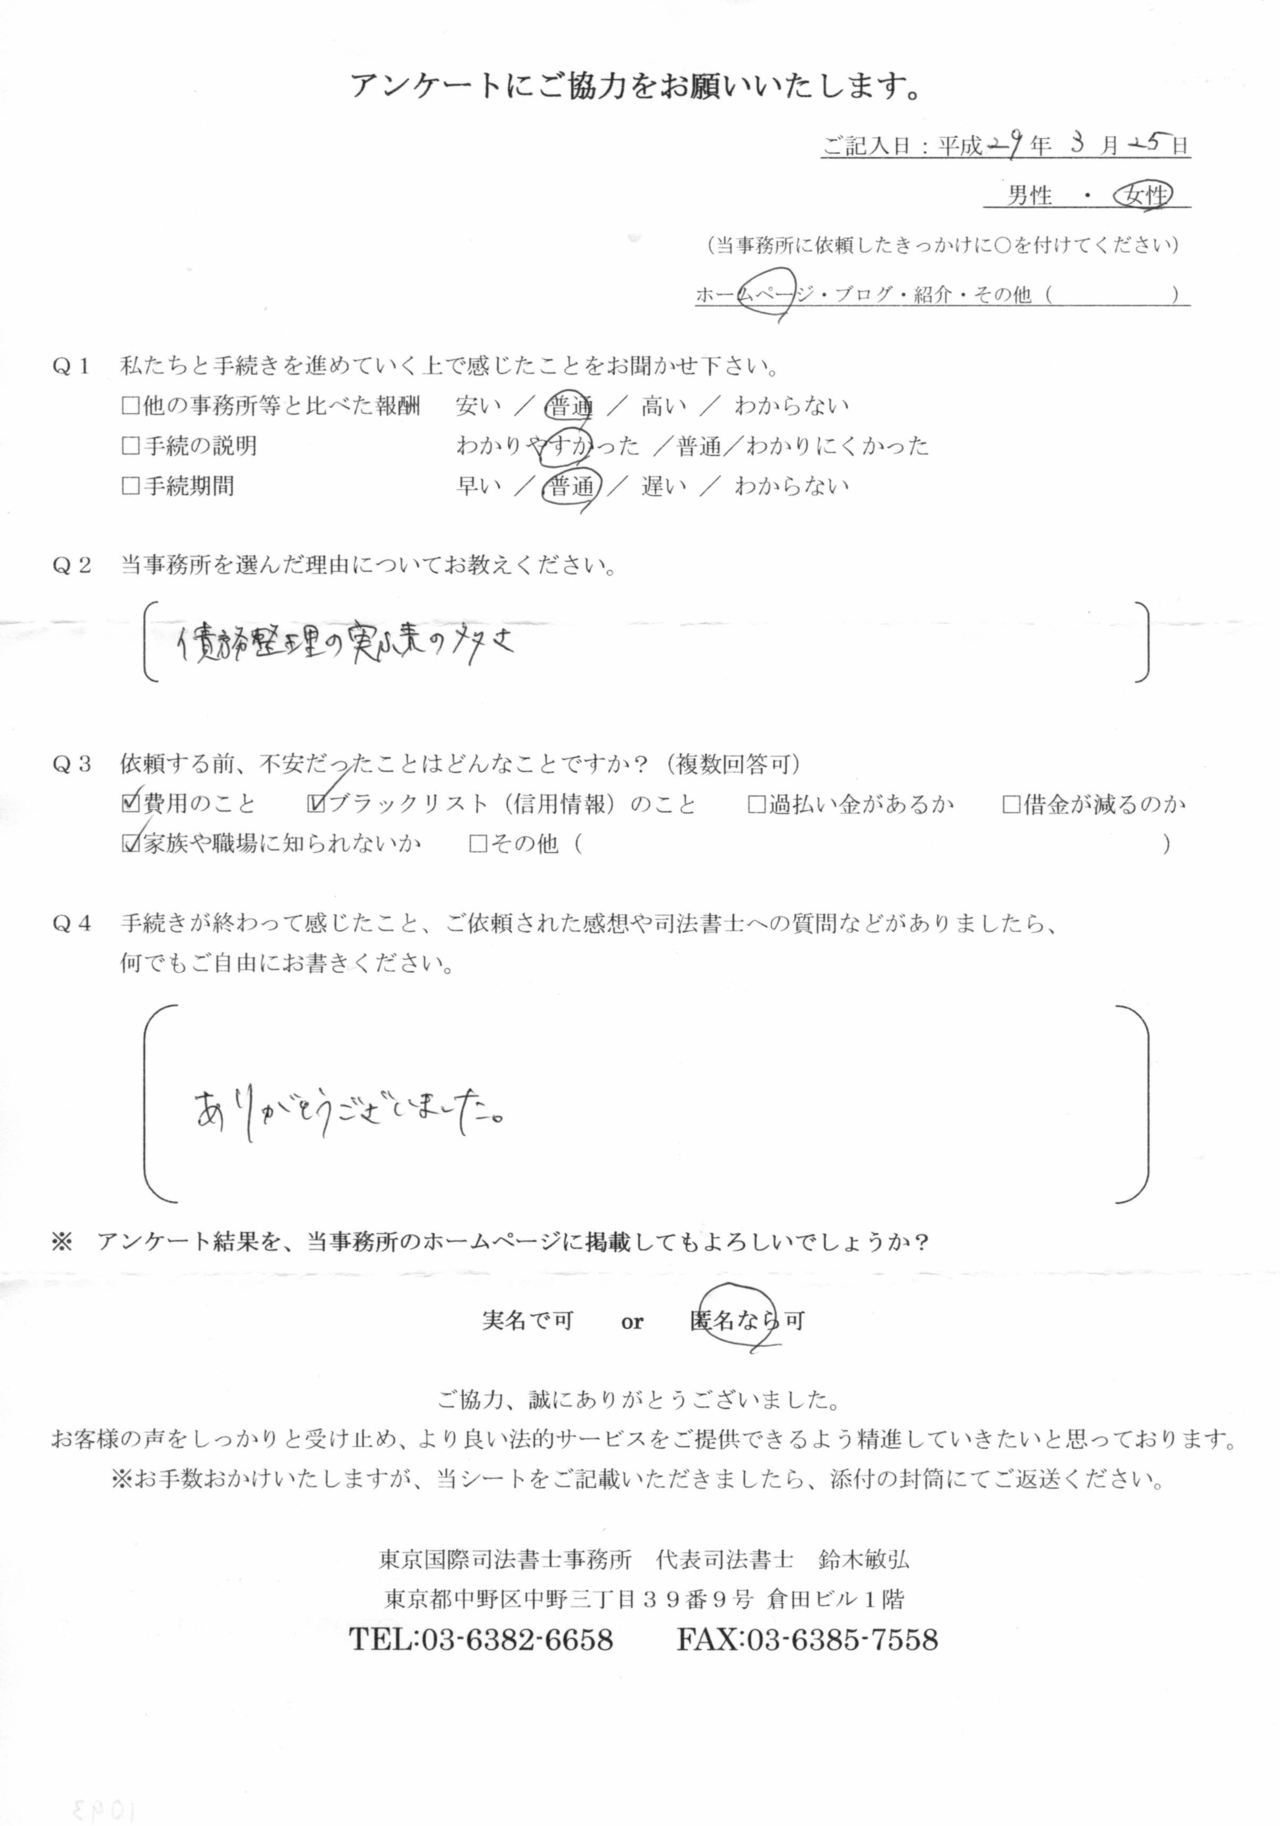 アンケートにご協力をお願いいたします。
ご記入日：平成29年 3 月 25日
男性 ・ 女性
（当事務所に依頼したきっかけに○を付けてください）
ホームページ・ブログ・紹介・その他（　　　　　）
Q1 私たちと手続きを進めていく上で感じたことをお聞かせ下さい。
□他の事務所等と比べた報酬 安い ／ 普通 ／ 高い ／ わからない
□手続の説明 わかりやすかった ／普通／わかりにくかった
□手続期間 早い ／ 普通 ／ 遅い ／ わからない
Q2 当事務所を選んだ理由についてお教えください。
債務整理の実績の多さ
Q3 依頼する前、不安だったことはどんなことですか？（複数回答可）
☑費用のこと ☑ブラックリスト（信用情報）のこと □過払い金があるか □借金が減るのか
☑家族や職場に知られないか □その他（　　　　　）
Q4 手続きが終わって感じたこと、ご依頼された感想や司法書士への質問などがありましたら、
何でもご自由にお書きください。
ありがとうございました。
※ アンケート結果を、当事務所のホームページに掲載してもよろしいでしょうか？
実名で可 or 匿名なら可
ご協力、誠にありがとうございました。
お客様の声をしっかりと受け止め、より良い法的サービスをご提供できるよう精進していきたいと思っております。
※お手数おかけいたしますが、当シートをご記載いただきましたら、添付の封筒にてご返送ください。
東京国際司法書士事務所 代表司法書士 鈴木敏弘
東京都中野区中野三丁目３９番９号 倉田ビル１階
TEL:03-6382-6658 FAX:03-6385-7558